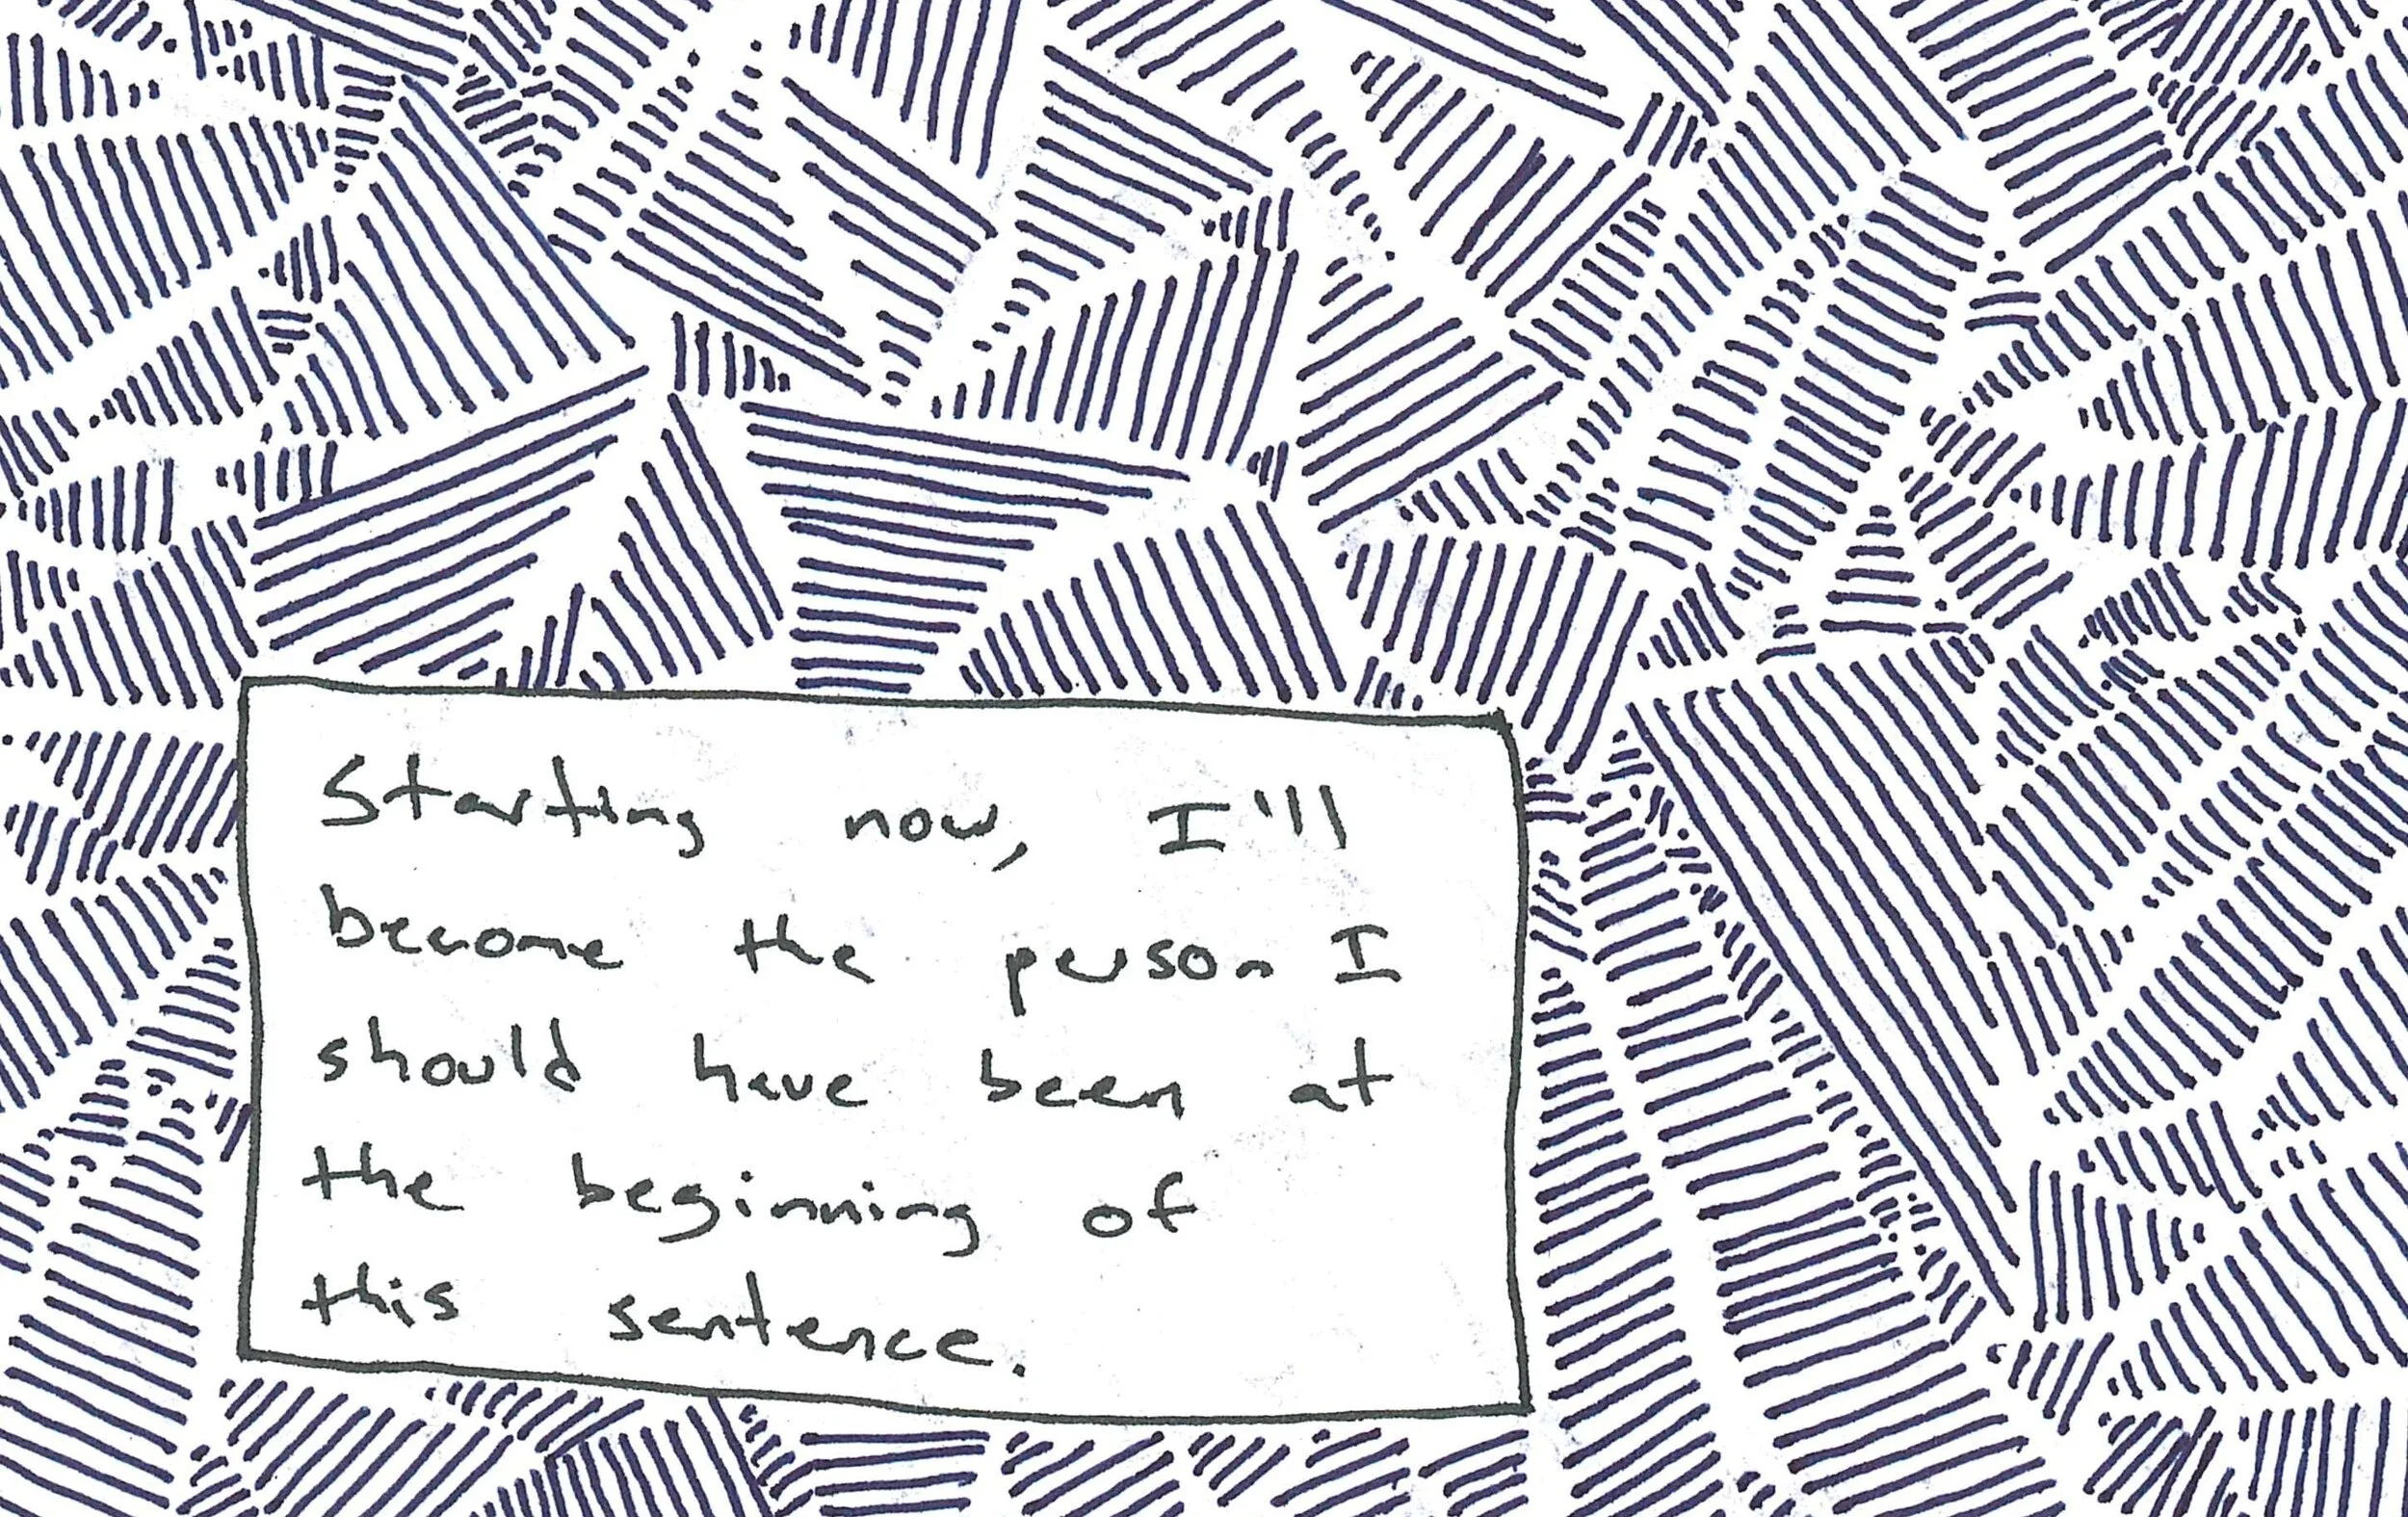 Starting now, I'll
become the person I
should have been at
the beginning of
this sentence.